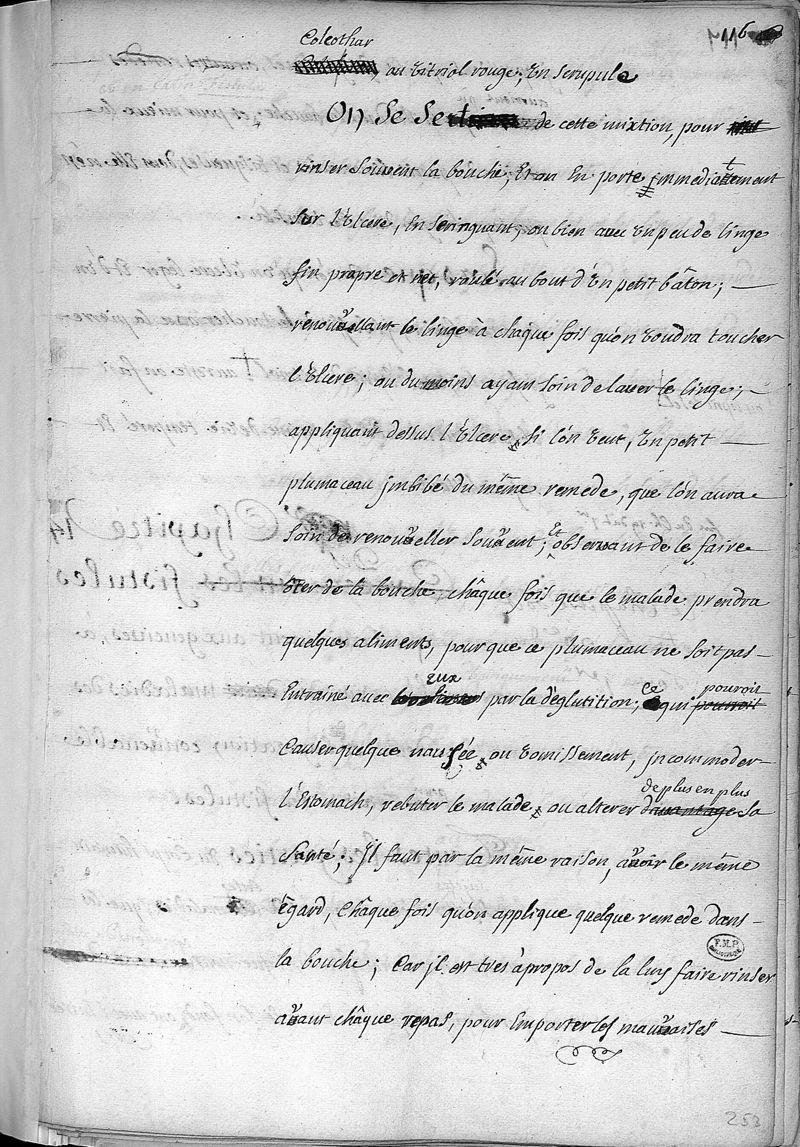 116
Colcothar
ou vitriol rouge; un scrupule
On se sert de cette mixtion, pour
rinser souvent la bouche; Et on En porte immediattement
sur l'Ulcere, En seringuant, ou bien avec un peu de linge
fin propre et net, roulé au bout d'un petit bâton; —
renouvellant le linge à chaque fois qu'on voudra toucher
l'Ulcere; ou du moins ayant soin de laver le linge; —
appliquant dessus l'Ulcere, si l'on veut, un petit —
plumaceau jmbibé du même remede, que l'on aura
soin de renouveller souvent; Et observant de le faire
ôter de la bouche, châque fois que le malade prendra
quelques aliments, pour que ce plumaceau ne soit pas —
Entraîné avec eux par la déglutition; ce qui pouroit
Causer quelque nausée, ou vomissement, jncommoder
l'Estomach, rebuter le malade, ou alterer de plus en plus sa
santé; Il faut par la même raison, avoir le même
égard, châque fois qu'on applique quelque remede dans —
la bouche; Car jl est très à propos de la luy faire rinser
avant châque repas, pour Emporter les mauvaises —
F.M.P.
253